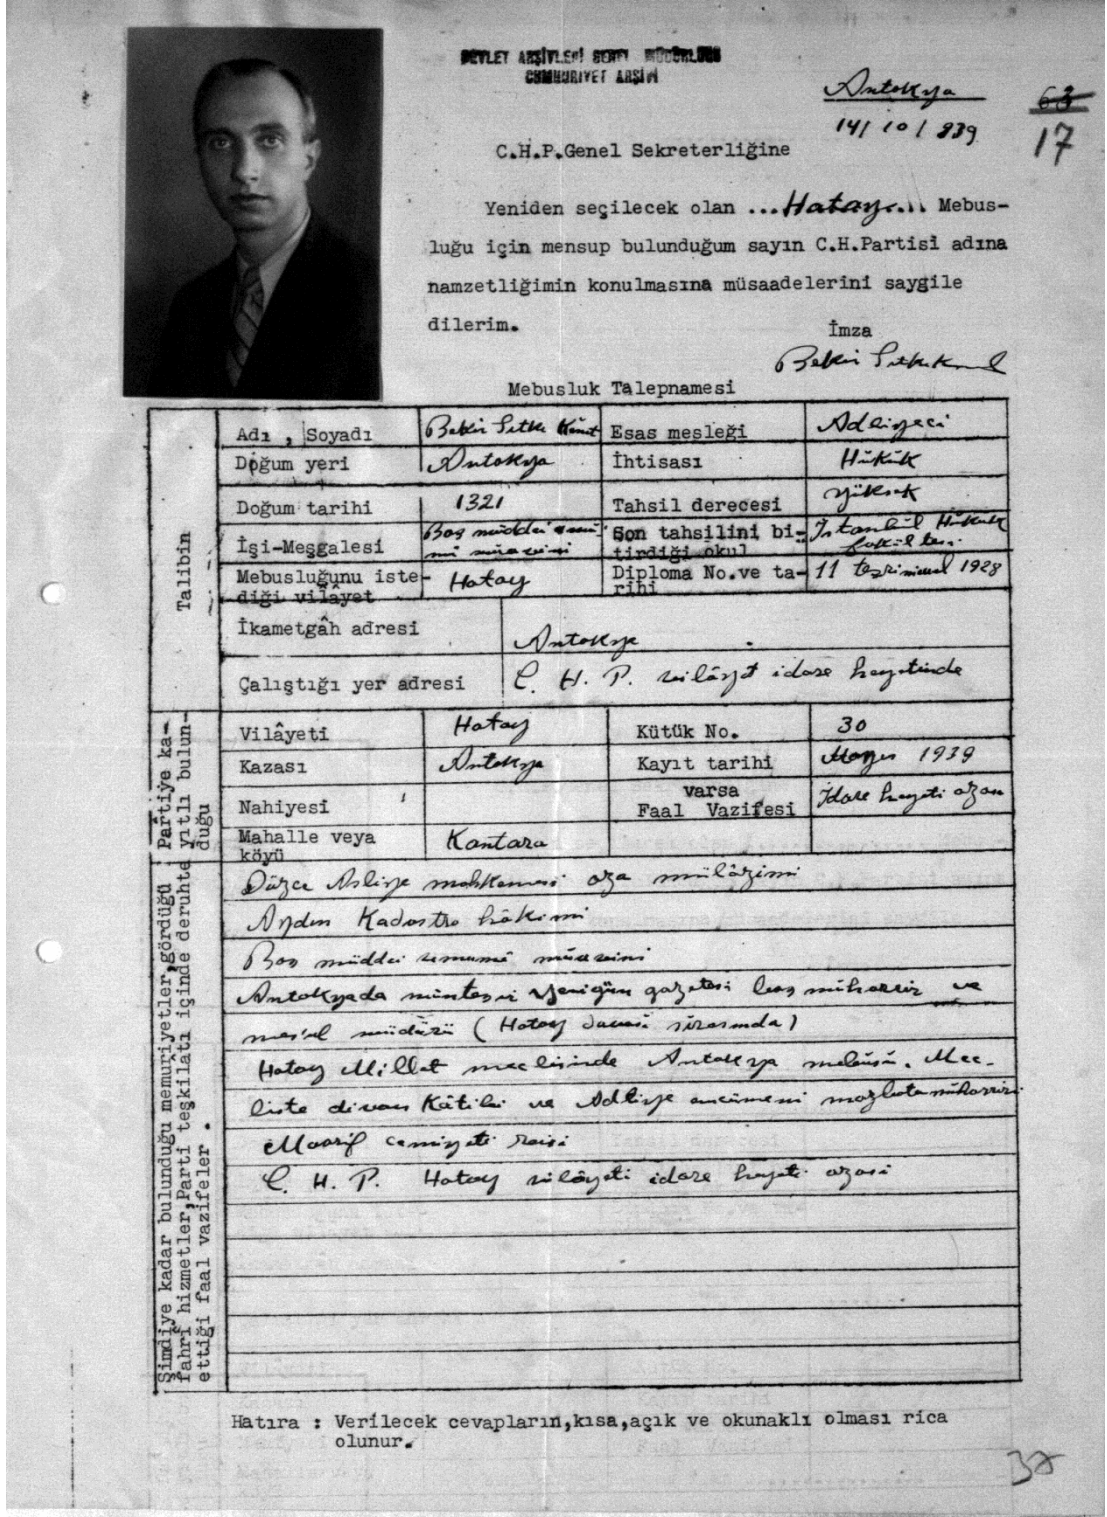 DEVLET ARŞİVLERİ GENEL MÜDÜRLÜĞÜ
CUMHURİYET ARŞİVİ
Antakya
14/10/939
63
17
C.H.P.Genel Sekreterliğine
Yeniden seçilecek olan ...Hatay... Mebus-
luğu için mensup bulunduğum sayın C.H.Partisi adına
namzetliğimin konulmasına müsaadelerini saygile
dilerim.
İmza
Bekir Sıtkı Kunt
Mebusluk Talepnamesi
Talibin
Adı , Soyadı Bekir Sıtkı Kunt Esas mesleği Adliyeci
Doğum yeri Antakya İhtisası Hükük
Doğum tarihi 1321 Tahsil derecesi yüksek
İşi-Meşgalesi Baş müddei umumî muavini Son tahsilini bi-tirdiği okul İstanbul Hukuk fakültesi
Mebusluğunu iste-diği vilâyet Hatay Diploma No.ve ta-rihi 11 teşrinievvel 1928
İkametgâh adresi Antakya
Çalıştığı yer adresi C. H. P. vilâyet idare heyetinde
Partiye ka-yıtlı bulun-duğu
Vilâyeti Hatay Kütük No. 30
Kazası Antakya Kayıt tarihi Mayıs 1939
Nahiyesi varsa Faal Vazifesi İdare heyeti azası
Mahalle veya köyü Kantara
Şimdiye kadar bulunduğu memuriyetler,gördüğü
fahrî hizmetler,Parti teşkilatı içinde deruhte
ettiği faal vazifeler .
Düzce Asliye mahkemesi aza mülâzimi
Aydın Kadastro hâkimi
Baş müddei umumî muavini
Antakyada münteşir Yenigün gazetesi baş muharrir ve
mes'ul müdürü (Hatay davası sırasında)
Hatay Millet meclisinde Antakya mebusu. Mec-
liste divan Kâtibi ve Adliye encümeni mazbata muharriri
Maarif cemiyeti reisi
C. H. P. Hatay vilâyeti idare heyeti azası
Hatıra : Verilecek cevapların,kısa,açık ve okunaklı olması rica
olunur.
37